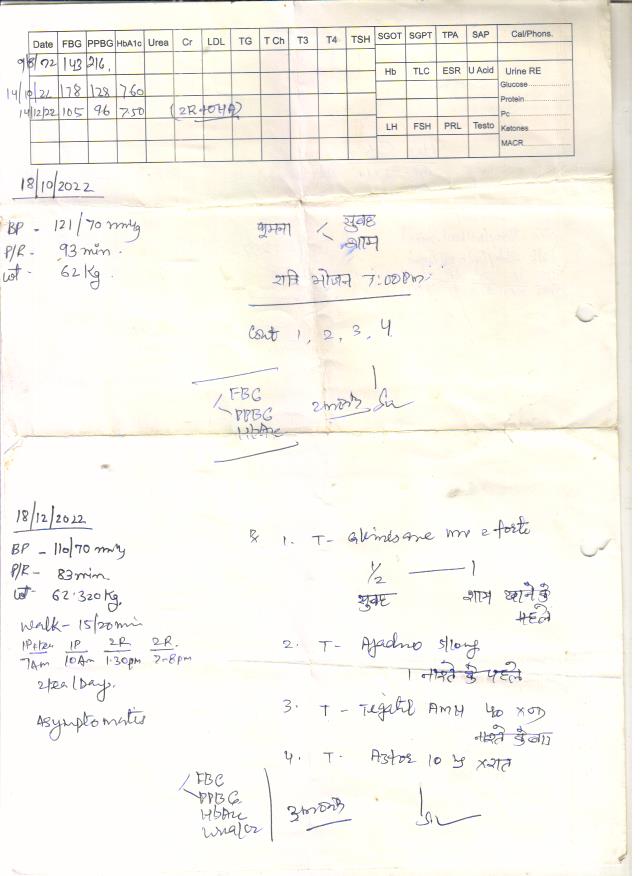 Date FBG PPBG HbA1c Urea Cr LDL TG T Ch T3 T4 TSH SGOT SGPT TPA SAP Cal/Phons.
143 216
Hb TLC ESR U Acid Urine RE
14/10/22 178 128 7.60
Glucose
Protein
14/12/22 105 96 7.50 (2R+OHA)
Pc
LH FSH PRL Testo Ketones
MACR
18/10/2022
BP - 121/70 mmHg
P/R - 93 min.
wt - 62 Kg.
घूमना < सुबह
शाम
रात्रि भोजन 7:00 Pm
Cont 1, 2, 3, 4
FBG
PPBG
HbA1c
2 months
18/12/2022
BP - 110/70 mmHg
P/R - 83 min.
wt - 62.320 Kg.
walk - 15/20 min
1P 2R 2R
7Am 10Am 1.30pm 7-8pm
2tea/Day.
Asymptomatic
1. T- mv 2 forte
1/2 —— 1
सुबह शाम खाने के
पहले
2. T-
1 नाश्ते के पहले
3. T- AMH 40
नाश्ते के बाद
4. T. 10
FBG
PPBG
HbA1c
Urea/Cr